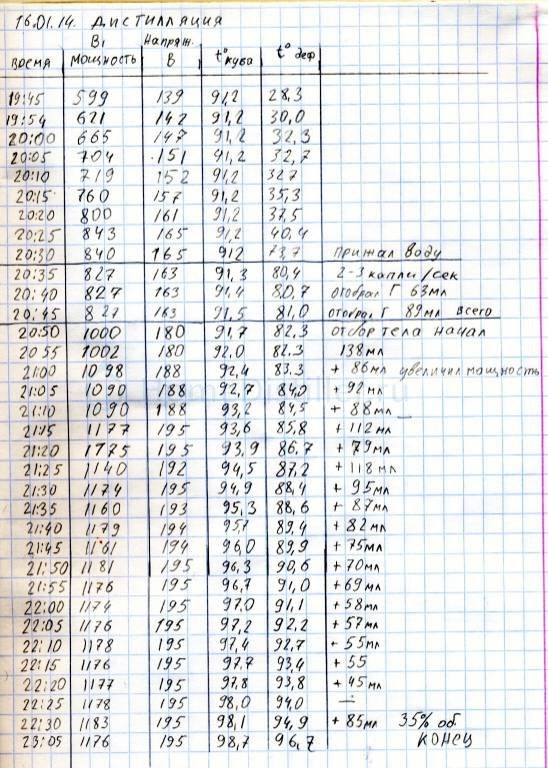 16.01.14. Дистилляция
время Вт мощность Напряж. В t° куба t° деф
19:45 599 139 91,2 28,3
19:54 621 142 91,2 30,0
20:00 665 147 91,2 32,3
20:05 704 151 91,2 32,7
20:10 719 152 91,2 32,7
20:15 760 157 91,2 35,3
20:20 800 161 91,2 37,5
20:25 843 165 91,2 40,4
20:30 840 165 91,2 73,7 прижал воду
20:35 827 163 91,3 80,4 2-3 капли/сек
20:40 827 163 91,4 80,7 отобрал Г 63мл
20:45 827 163 91,5 81,0 отобрал Г 89мл всего
20:50 1000 180 91,7 82,3 отбор тела начал
20 55 1002 180 92,0 82,3 138мл
21:00 1098 188 92,4 83,3 + 86мл увеличил мощность
21:05 1090 188 92,7 84,0 + 92мл
21:10 1090 188 93,2 84,5 + 88мл
21:15 1177 195 93,6 85,8 + 112мл
21:20 1175 195 93,9 86,7 + 79мл
21:25 1140 192 94,5 87,2 + 118мл
21:30 1174 195 94,9 88,4 + 95мл
21:35 1160 193 95,3 88,6 + 87мл
21:40 1179 194 95,7 89,4 + 82мл
21:45 1161 194 96,0 89,9 + 75мл
21:50 1181 195 96,3 90,6 + 70мл
21:55 1176 195 96,7 91,0 + 69мл
22:00 1174 195 97,0 91,1 + 58мл
22:05 1176 195 97,2 92,2 + 57мл
22:10 1178 195 97,4 92,7 + 55мл
22:15 1176 195 97,7 93,4 + 55
22:20 1177 195 97,8 93,8 + 45мл
22:25 1178 195 98,0 94,0 —
22:30 1183 195 98,1 94,9 + 85мл 35% об
23:05 1176 195 98,7 96,7 конец